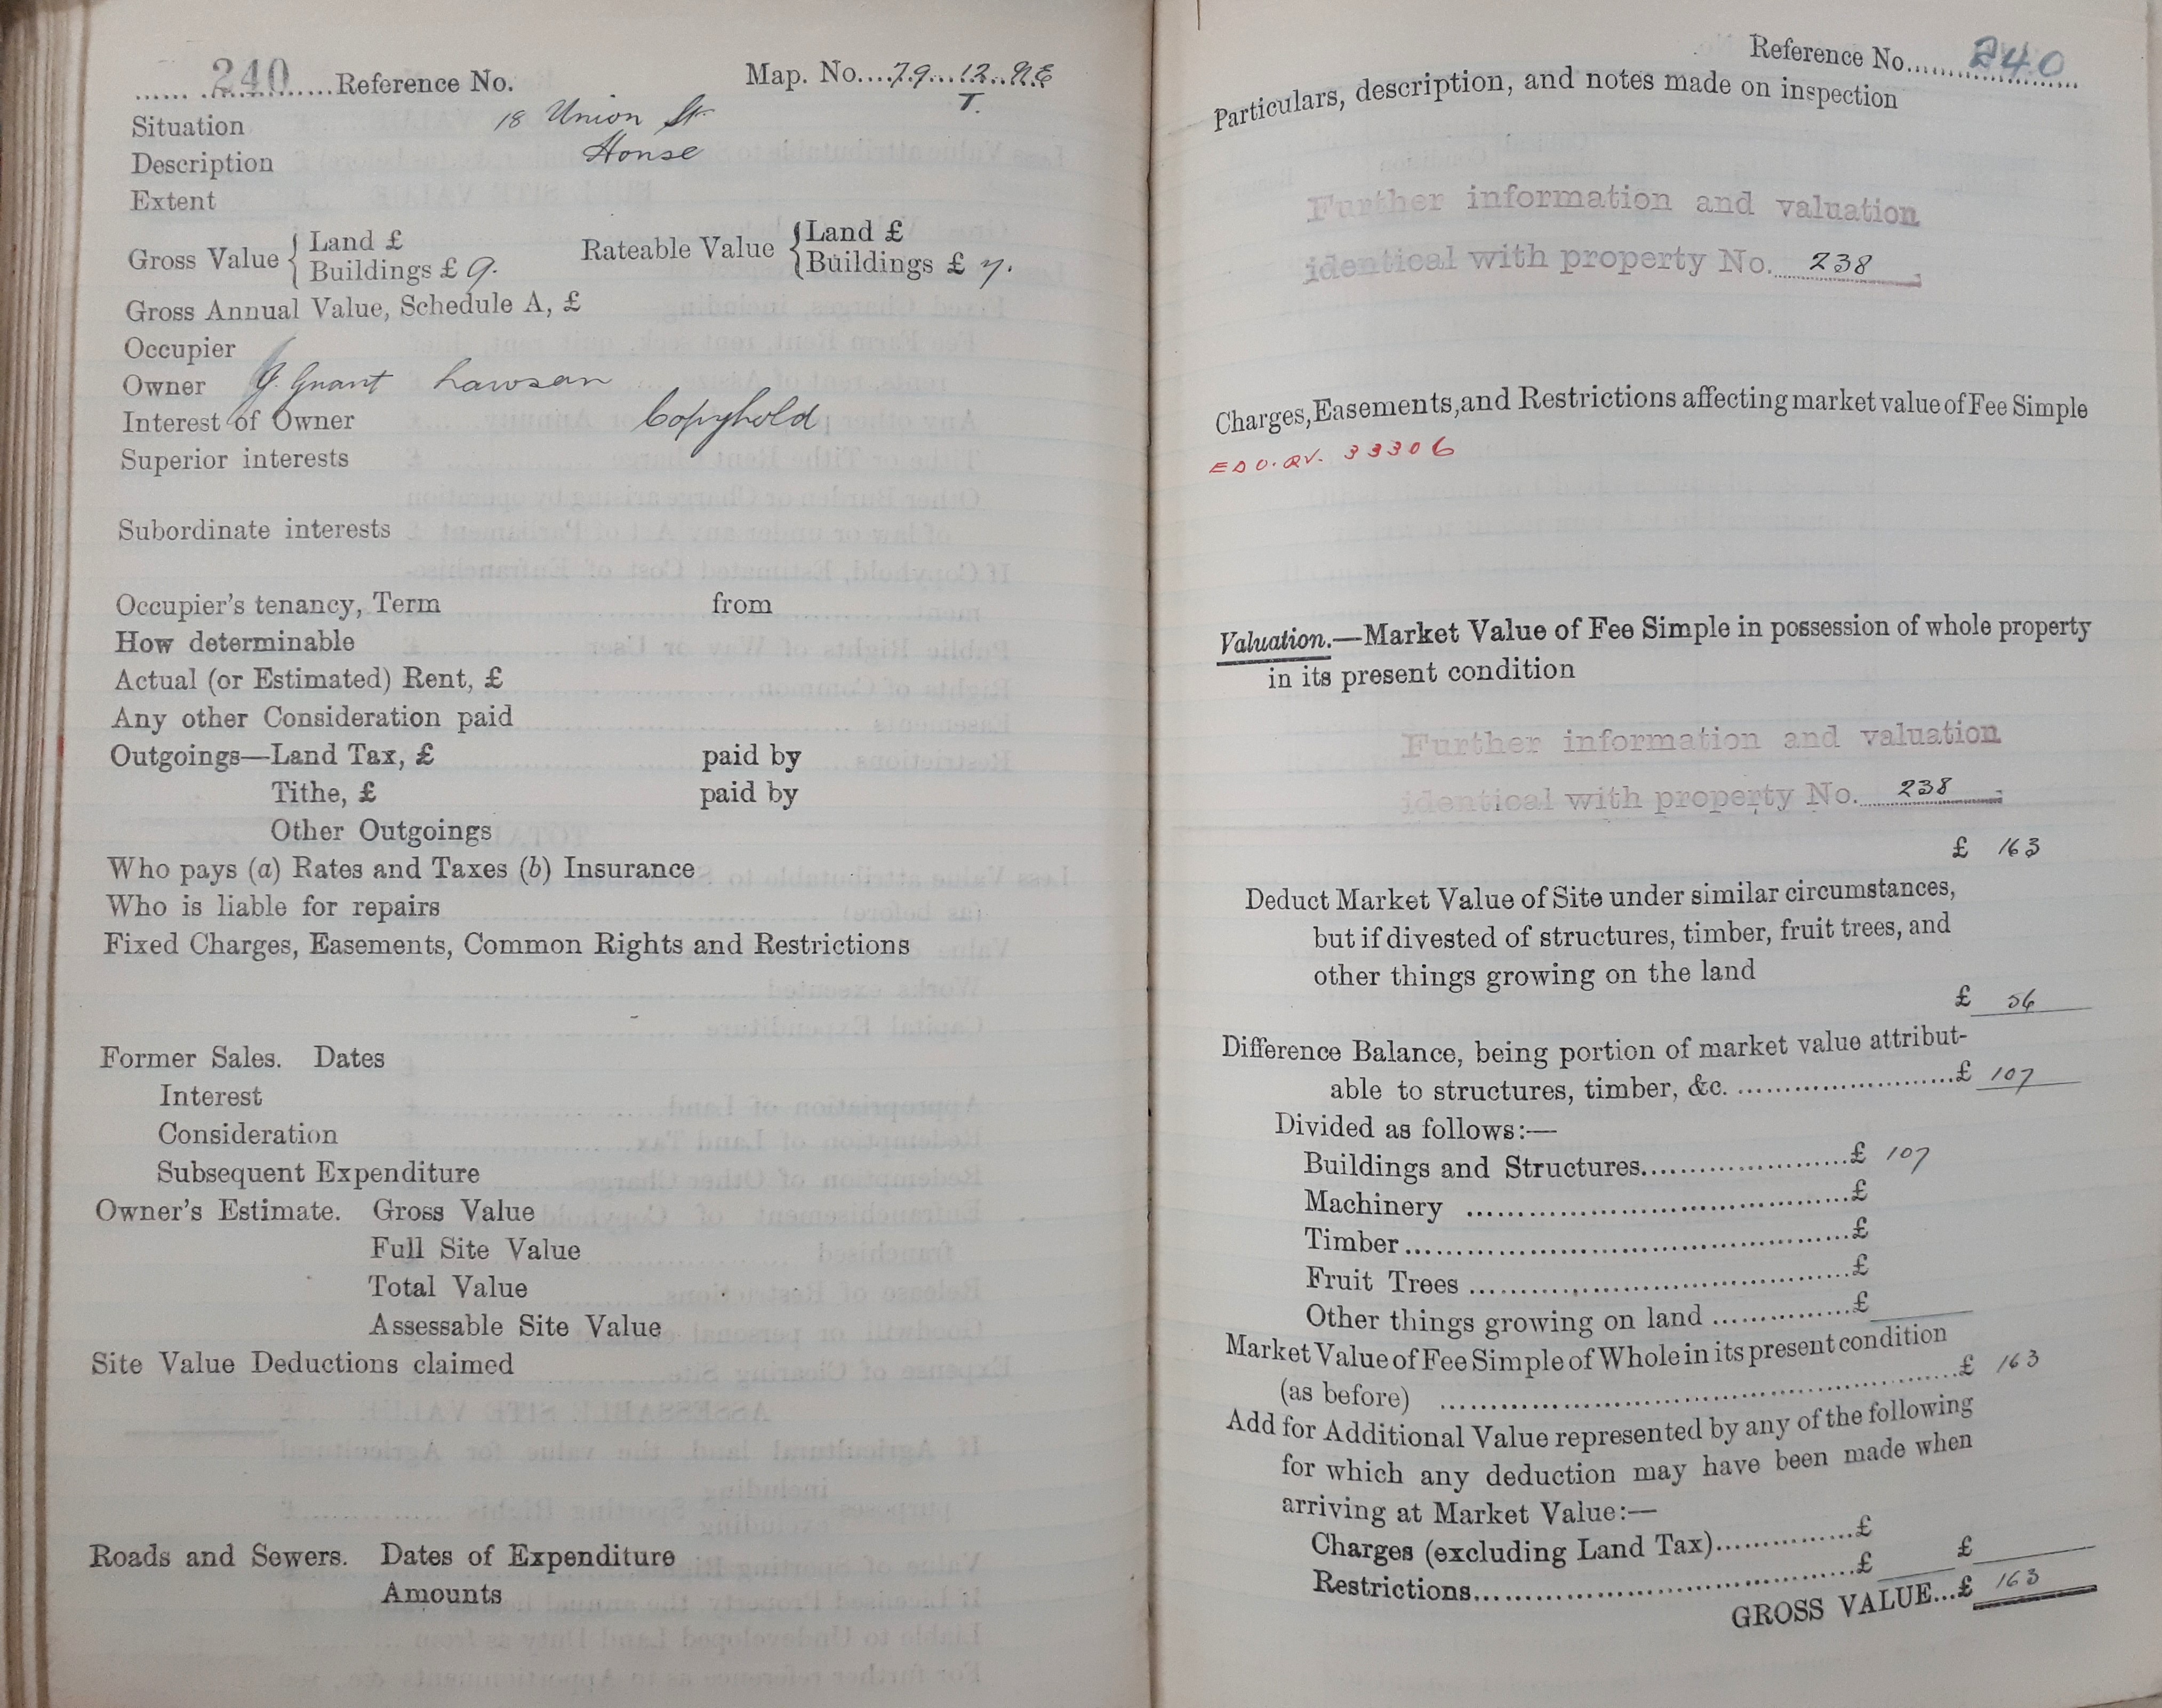 240 Reference No. Map. No. 79. 12. N.E
T.
Situation 18 Union St
Description House
Extent
Gross Value { Land £
Buildings £ 9. Rateable Value { Land £
Buildings £ 7.
Gross Annual Value, Schedule A, £
Occupier
Owner J. Grant Lawson
Interest of Owner Copyhold
Superior interests
Subordinate interests
Occupier's tenancy, Term from
How determinable
Actual (or Estimated) Rent, £
Any other Consideration paid
Outgoings—Land Tax, £ paid by
Tithe, £ paid by
Other Outgoings
Who pays (a) Rates and Taxes (b) Insurance
Who is liable for repairs
Fixed Charges, Easements, Common Rights and Restrictions
Former Sales. Dates
Interest
Consideration
Subsequent Expenditure
Owner's Estimate. Gross Value
Full Site Value
Total Value
Assessable Site Value
Site Value Deductions claimed
Roads and Sewers. Dates of Expenditure
Amounts
Reference No. 240
Particulars, description, and notes made on inspection
Further information and valuation
identical with property No. 238
Charges, Easements, and Restrictions affecting market value of Fee Simple
33306
Valuation.—Market Value of Fee Simple in possession of whole property
in its present condition
Further information and valuation
identical with property No. 238
£ 163
Deduct Market Value of Site under similar circumstances,
but if divested of structures, timber, fruit trees, and
other things growing on the land
£ 56
Difference Balance, being portion of market value attribut-
able to structures, timber, &c. £ 107
Divided as follows:—
Buildings and Structures £ 107
Machinery £
Timber £
Fruit Trees £
Other things growing on land £
Market Value of Fee Simple of Whole in its present condition
(as before) £ 163
Add for Additional Value represented by any of the following
for which any deduction may have been made when
arriving at Market Value:—
Charges (excluding Land Tax) £
Restrictions £ £
GROSS VALUE...£ 163